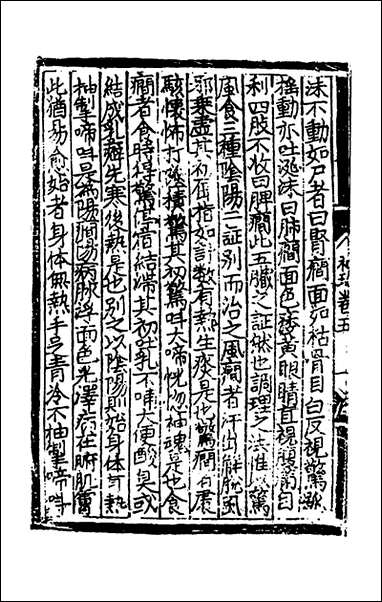 沫不動如尸者曰腎癇面如枯骨目白反視驚跳
搖動亦吐涎沫曰肺癇面色痿黃眼睛直視腹滿自
利四肢不收曰脾癇此五臟之証狀也調理之法惟驚
風食三種陰陽二証別而治之風癇者汗出解脫風
邪乗虛其初五指如計數有熱生痰是也驚癇有震
駭懷怖打墜積驚其初驚叫大啼恍惚神魂是也食
癇者食時得驚停宿結滯其初吐乳不哺大便酸臭或
結成乳癖先寒後熱是也別之以陰陽則始身体有熱
抽掣啼叫是為陽癇陽病脉浮面色光澤病在腑肌膚
此猶易愈始者身体無熱手足青冷不抽掣啼叫
補遺卷五